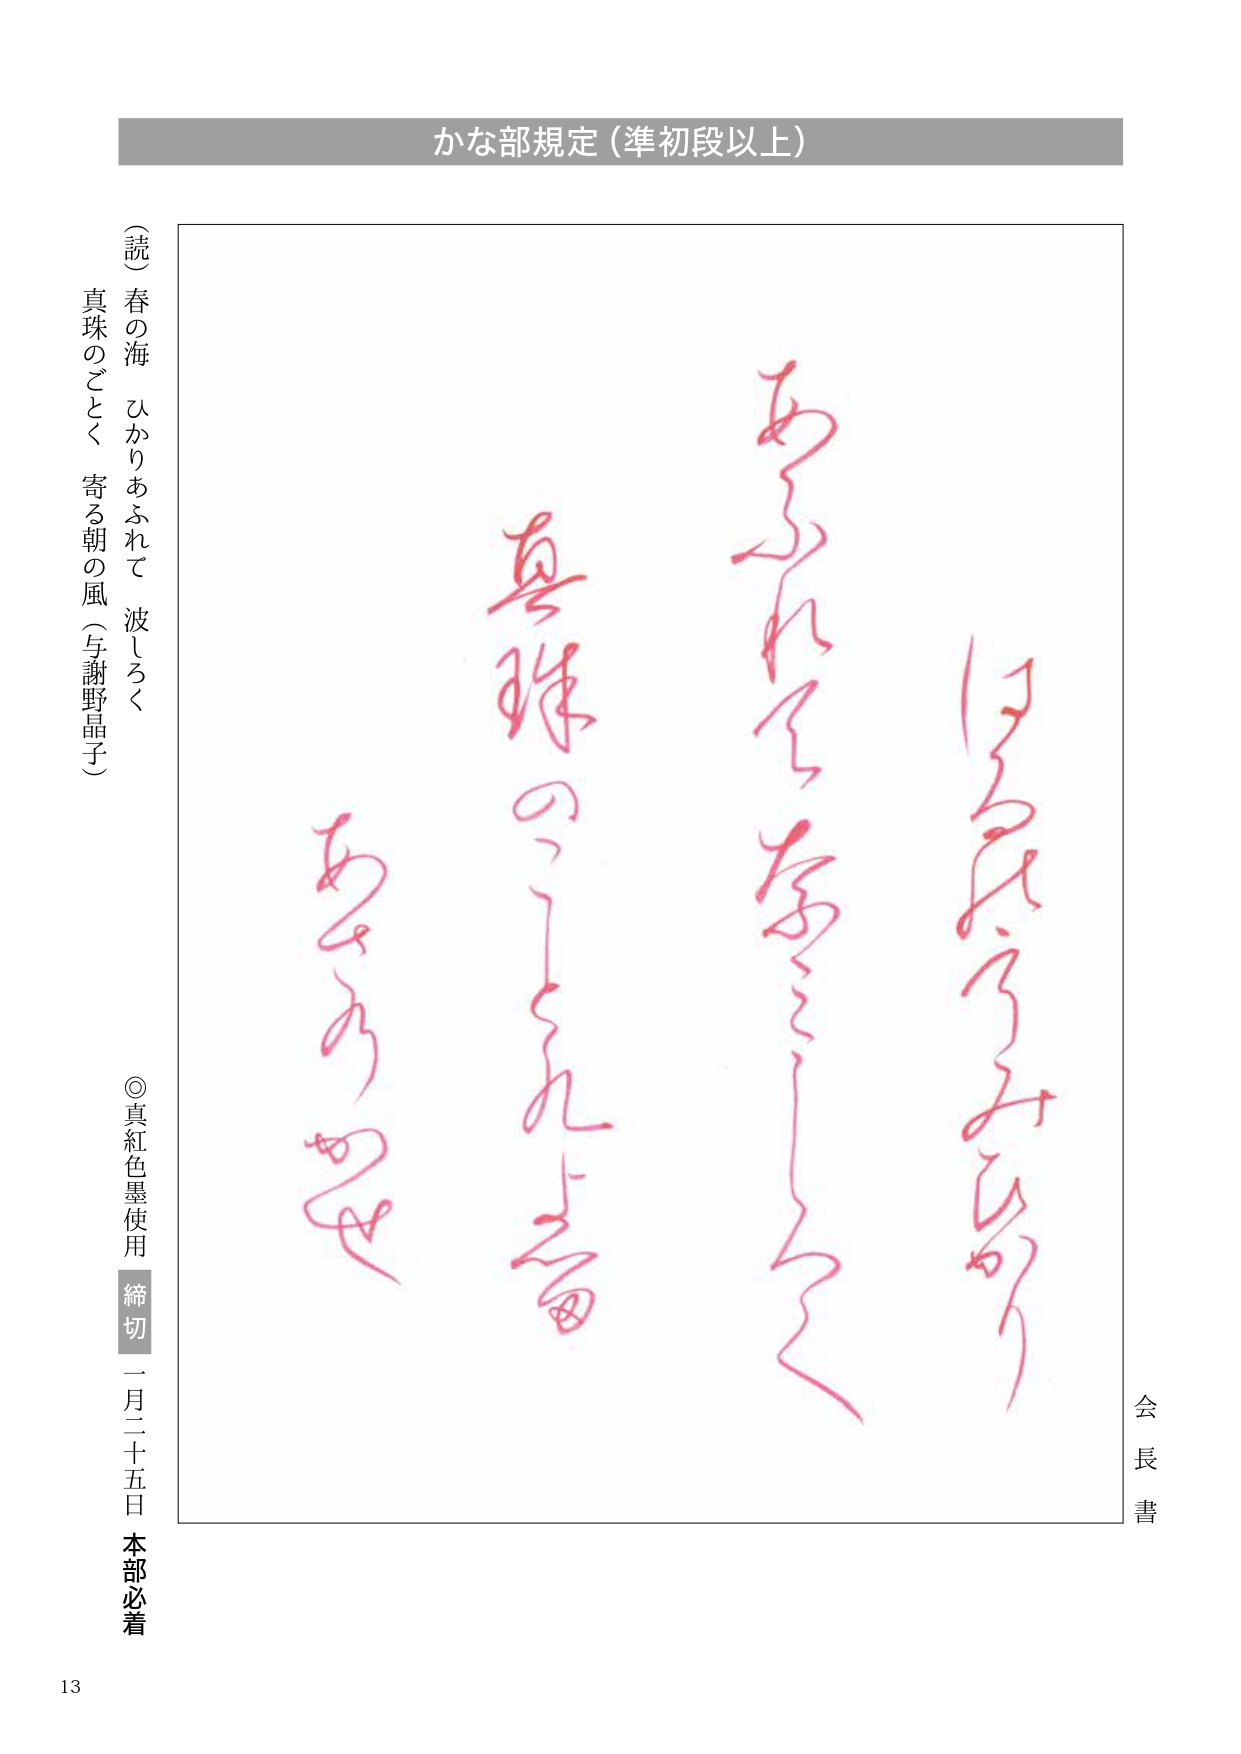 かな部規定（準初段以上）
会長書
はるのうみひかり
あふれて奈みしろく
真珠のことく
あさのかせ
（読）春の海　ひかりあふれて　波しろく
真珠のごとく　寄る朝の風（与謝野晶子）
◎真紅色墨使用　締切　一月二十五日　本部必着
13